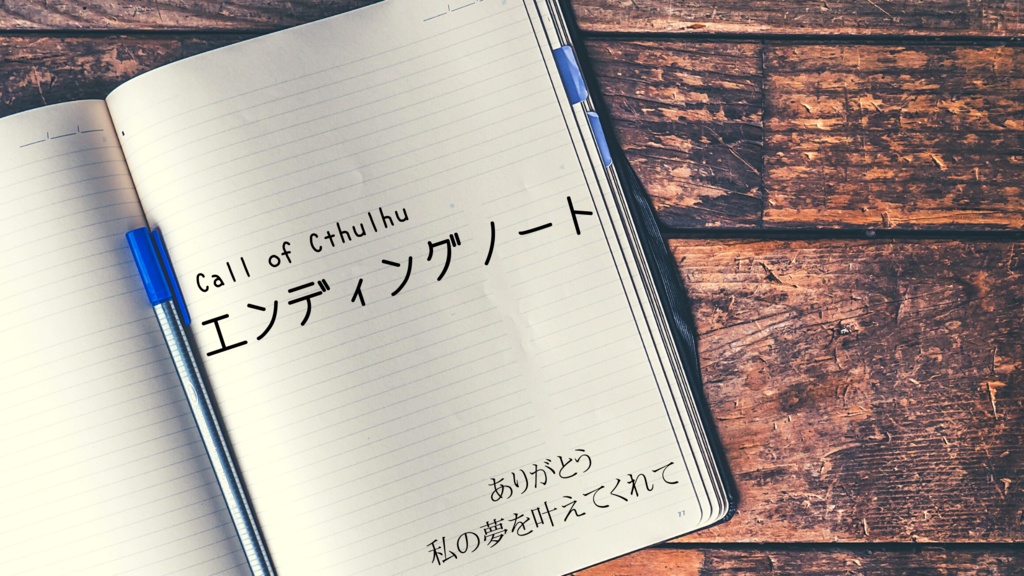 Call of Cthulhu
エンディングノート
ありがとう
私の夢を叶えてくれて
77